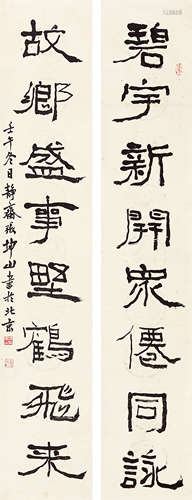 碧宇新開眾僊同詠
故鄉盛事野鶴飛来
壬午冬日靜齋張坤山書於北京